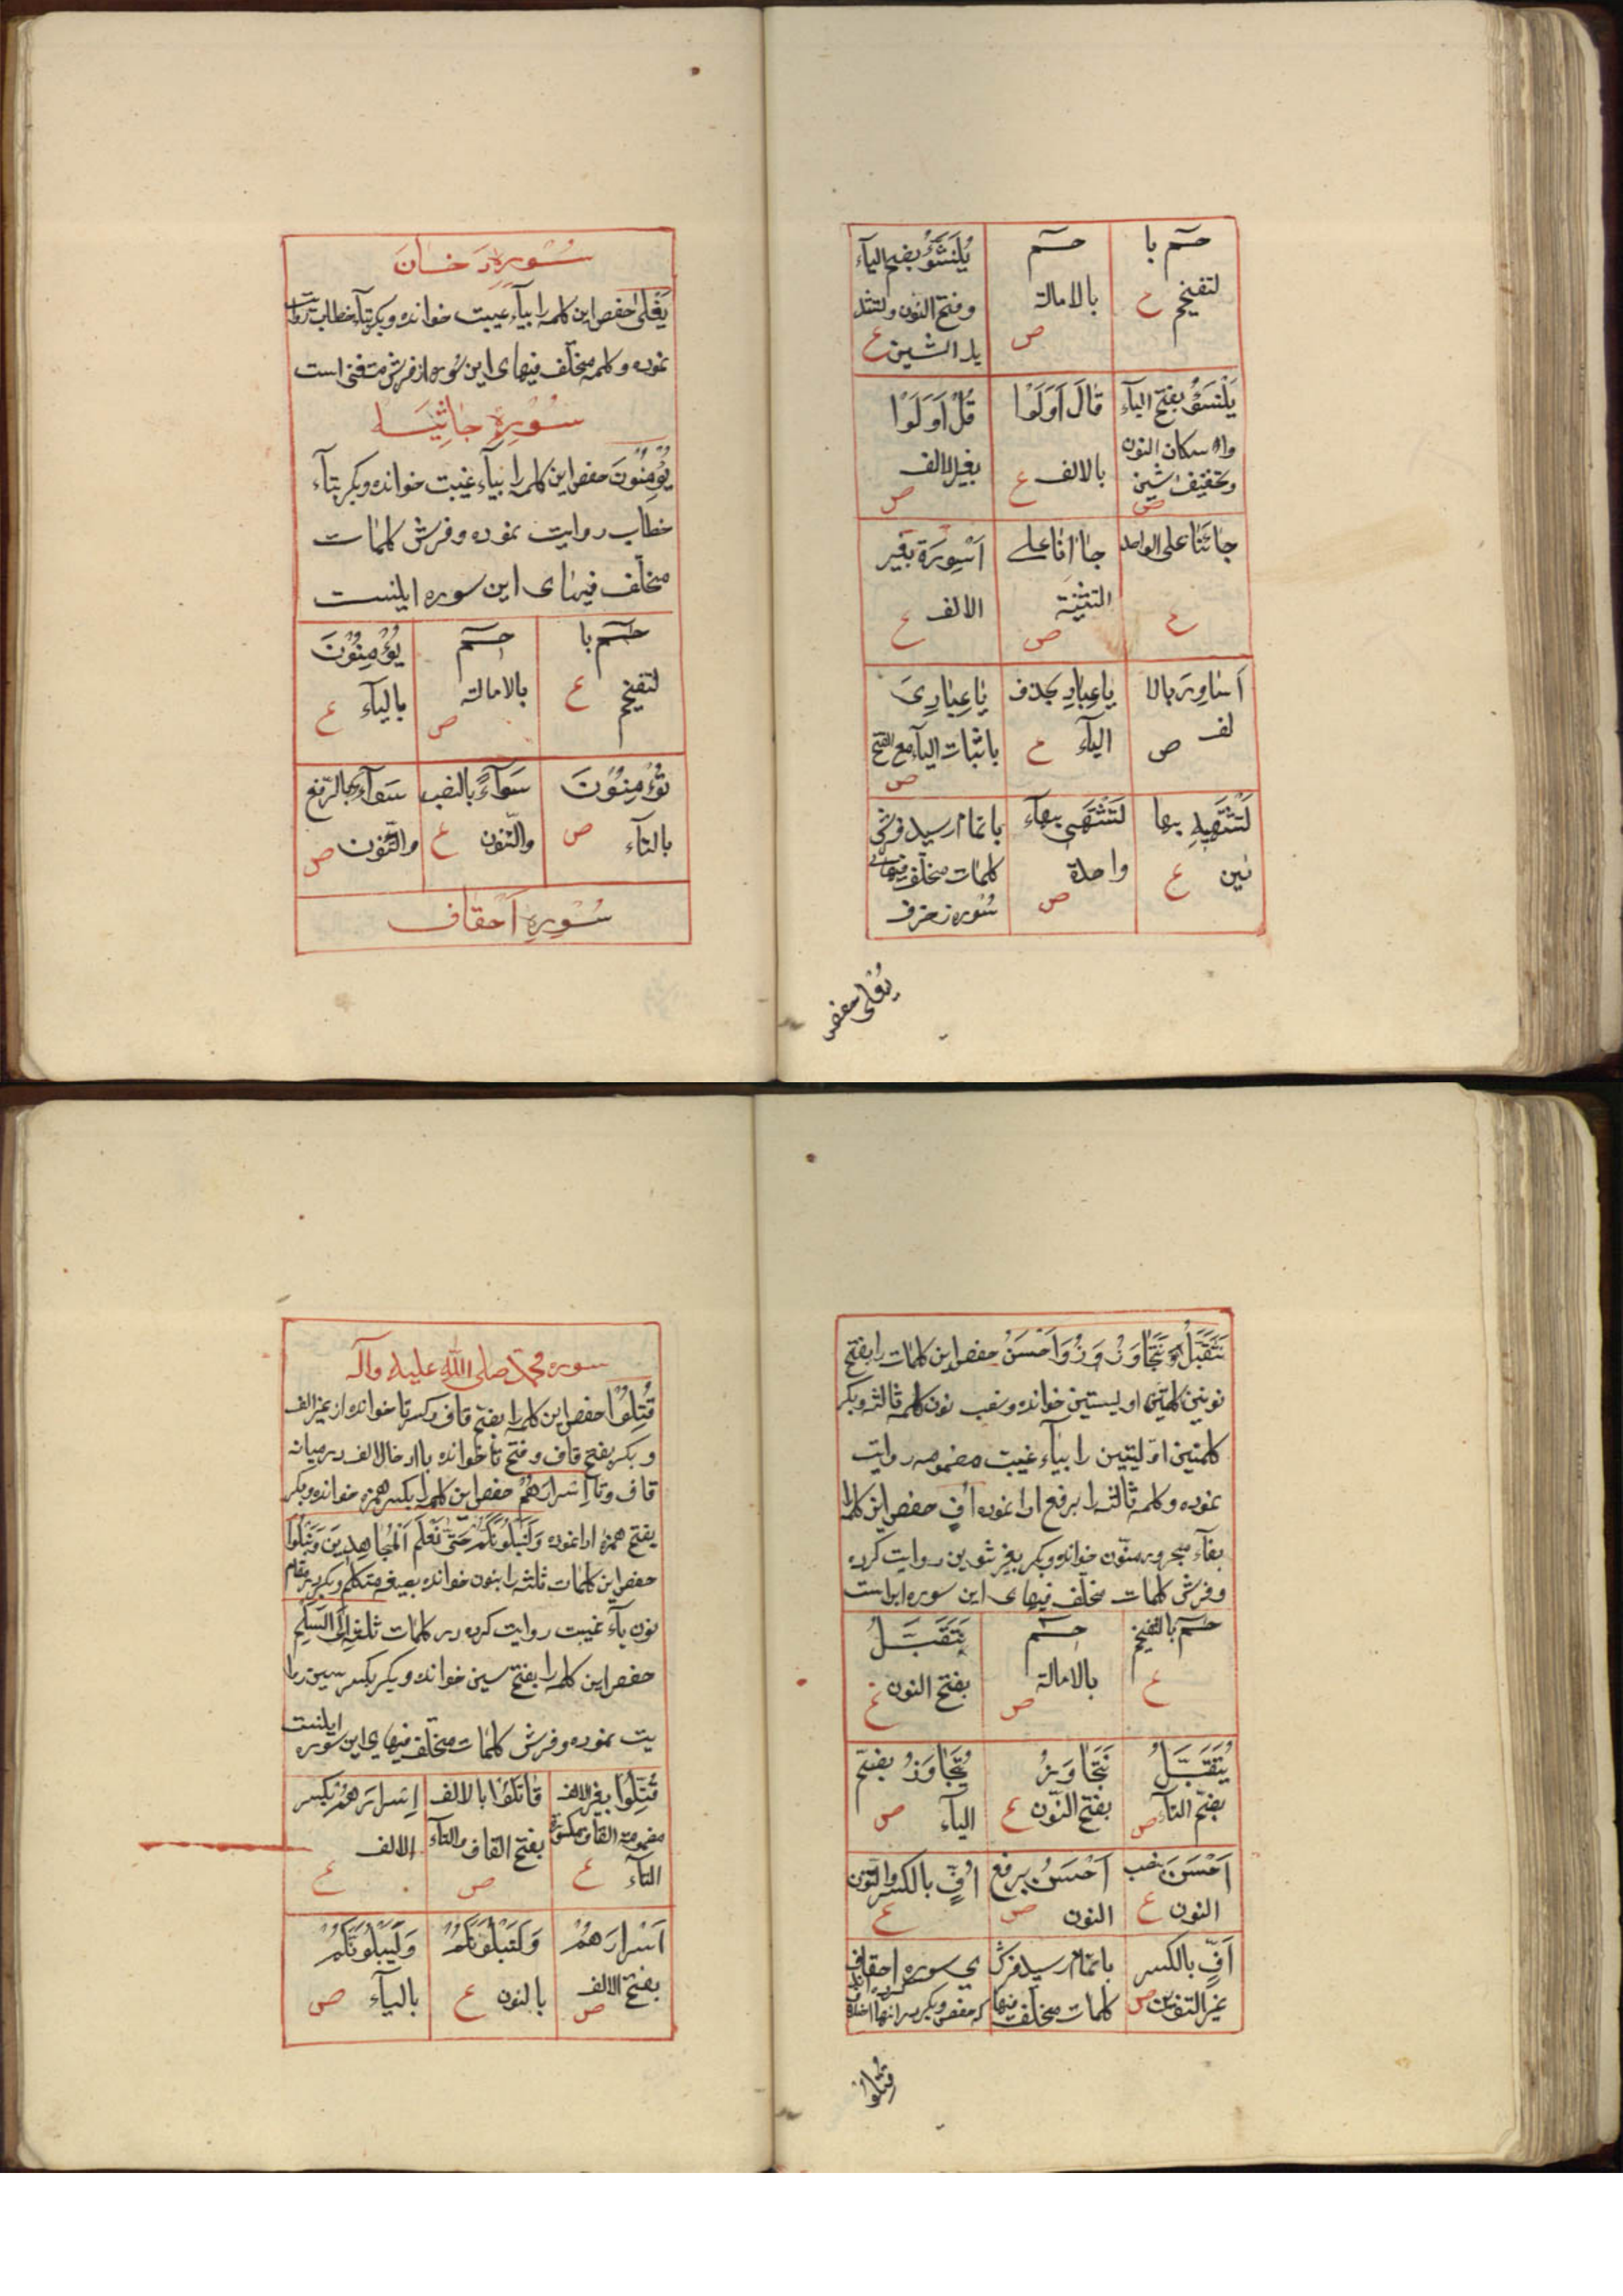 حم با
لتفخیم ع
حم
بالامالة
ص
یُنَشَّؤُ بضم الیآء
وفتح النون وتشد
ید الشین ع
یَنْشَؤُ بفتح الیآء
واسکان النون
وتخفیف شین
ص
قَالَ اَوَلَوْا
بالالف ع
قُلْ اَوَلَوْا
بغیرالالف
ص
جَائَنَا علی الواحد
ع
جَاانَا علی
التثنیة
ص
اَسْوِرَة بغیر
الالف ع
اَسَاوِرَ بالا
لف ص
یَاعِبَادِ بحذف
الیآء ع
یَاعِبَادِیَ
باثبات الیآء مع الفتح
ص
لَتَشْتَهِیهِ بها
ئین ع
لَتَشْتَهِی بهآء
واحدة
ص
باتمام رسید فرش
کلمات مختلف فیهای
سُوره زخرف
یَغْلی حفص
سُورهِ دخَان
یَغْلی حفص این کلمه را بیآء غیبت خوانده وبکر بتآء خطاب روایت
نموده و کلمه مختلف فیهای این سوره از فرش متفی است
سُورهِ جَاثِیَه
یُؤْمِنُونَ حفص این کلمه را بیآء غیبت خوانده وبکر بتآء
خطاب روایت نموده وفرش کلمات
مختلف فیهای این سوره اینست
حم با
لتفخیم ع
حم
بالامالة
ص
یُؤْمِنُونَ
بالیآء ع
تُؤْمِنُونَ
بالتآء ص
سَوَآءً بالنصب
والتنون ع
سَوَآءٌ بالرفع
والتنون ص
سُورهِ اَحْقاف
نَتَقَبَّلُ وَنَتَجَاوَزُ وَاَحْسَنَ حفص این کلمات را بفتح
نونین کلمتین اولیتین خوانده ونصب نون کلمه ثالثه وبکر
کلمتین اولیتین را بیآء غیبت مضمومه روایت
نموده وکلمه ثالثه را برفع ادا نموده اُفٍّ حفص این کلمه را
بفآء مجرور منون خوانده وبکر بغیر تنوین روایت کرده
وفرش کلمات مختلف فیهای این سوره این است
حم بالتفخیم
ع
حم
بالامالة
ص
نَتَقَبَّلُ
بفتح النون ع
یُتَقَبَّلُ
بفتح التآء ص
نَتَجَاوَزُ
بفتح النّون ع
یُتَجَاوَزُ بفتح
الیآء ص
اَحْسَنَ بنصب
النون ع
اَحْسَنُ برفع
النون ص
اُفٍّ بالکسر والتنون
ع
اُفِّ بالکسر
غیر التنوین ص
باتمام رسید فرش
کلمات مختلف فیها
ی سوره احقاف
که حفص وبکر در آنها اختلاف
قُتِلُوا
سوره محمد صلی الله علیه وآله
قُتِلُوا حفص این کلمه را بضم قاف وکسر تا خوانده از غیر الف
وبکر بفتح قاف وفتح تا خوانده باادخال الف درمیانه
قاف وتا اِسْرَارَهُمْ حفص این کلمه را بکسر همزه خوانده وبکر
بفتح همزه ادا نموده وَلَنَبْلُوَنَّکُمْ حَتّی نَعْلَمَ الْمُجَاهِدِینَ وَنَبْلُوَا
حفص این کلمات ثلثه را بنون خوانده بصیغه متکلم وبکر در مقام
نون یآء غیبت روایت کرده در کلمات ثلثه اِلَی السَّلْمِ
حفص این کلمه را بفتح سین خوانده وبکر بکسر سین روا
یت نموده وفرش کلمات مختلف فیهای این سوره اینست
قُتِلُوا بغیر الالف
مضمومة القاف مکسورة
التآء ع
قَاتَلُوا بالالف
بفتح القاف والتآء
ص
اِسْرَارَهُمْ بکسر
الالف
ع
اَسْرَارَهُمْ
بفتح الالف
ص
وَلَنَبْلُوَنَّکُمْ
بالنون ع
وَلَیَبْلُوَنَّکُمْ
بالیآء ص